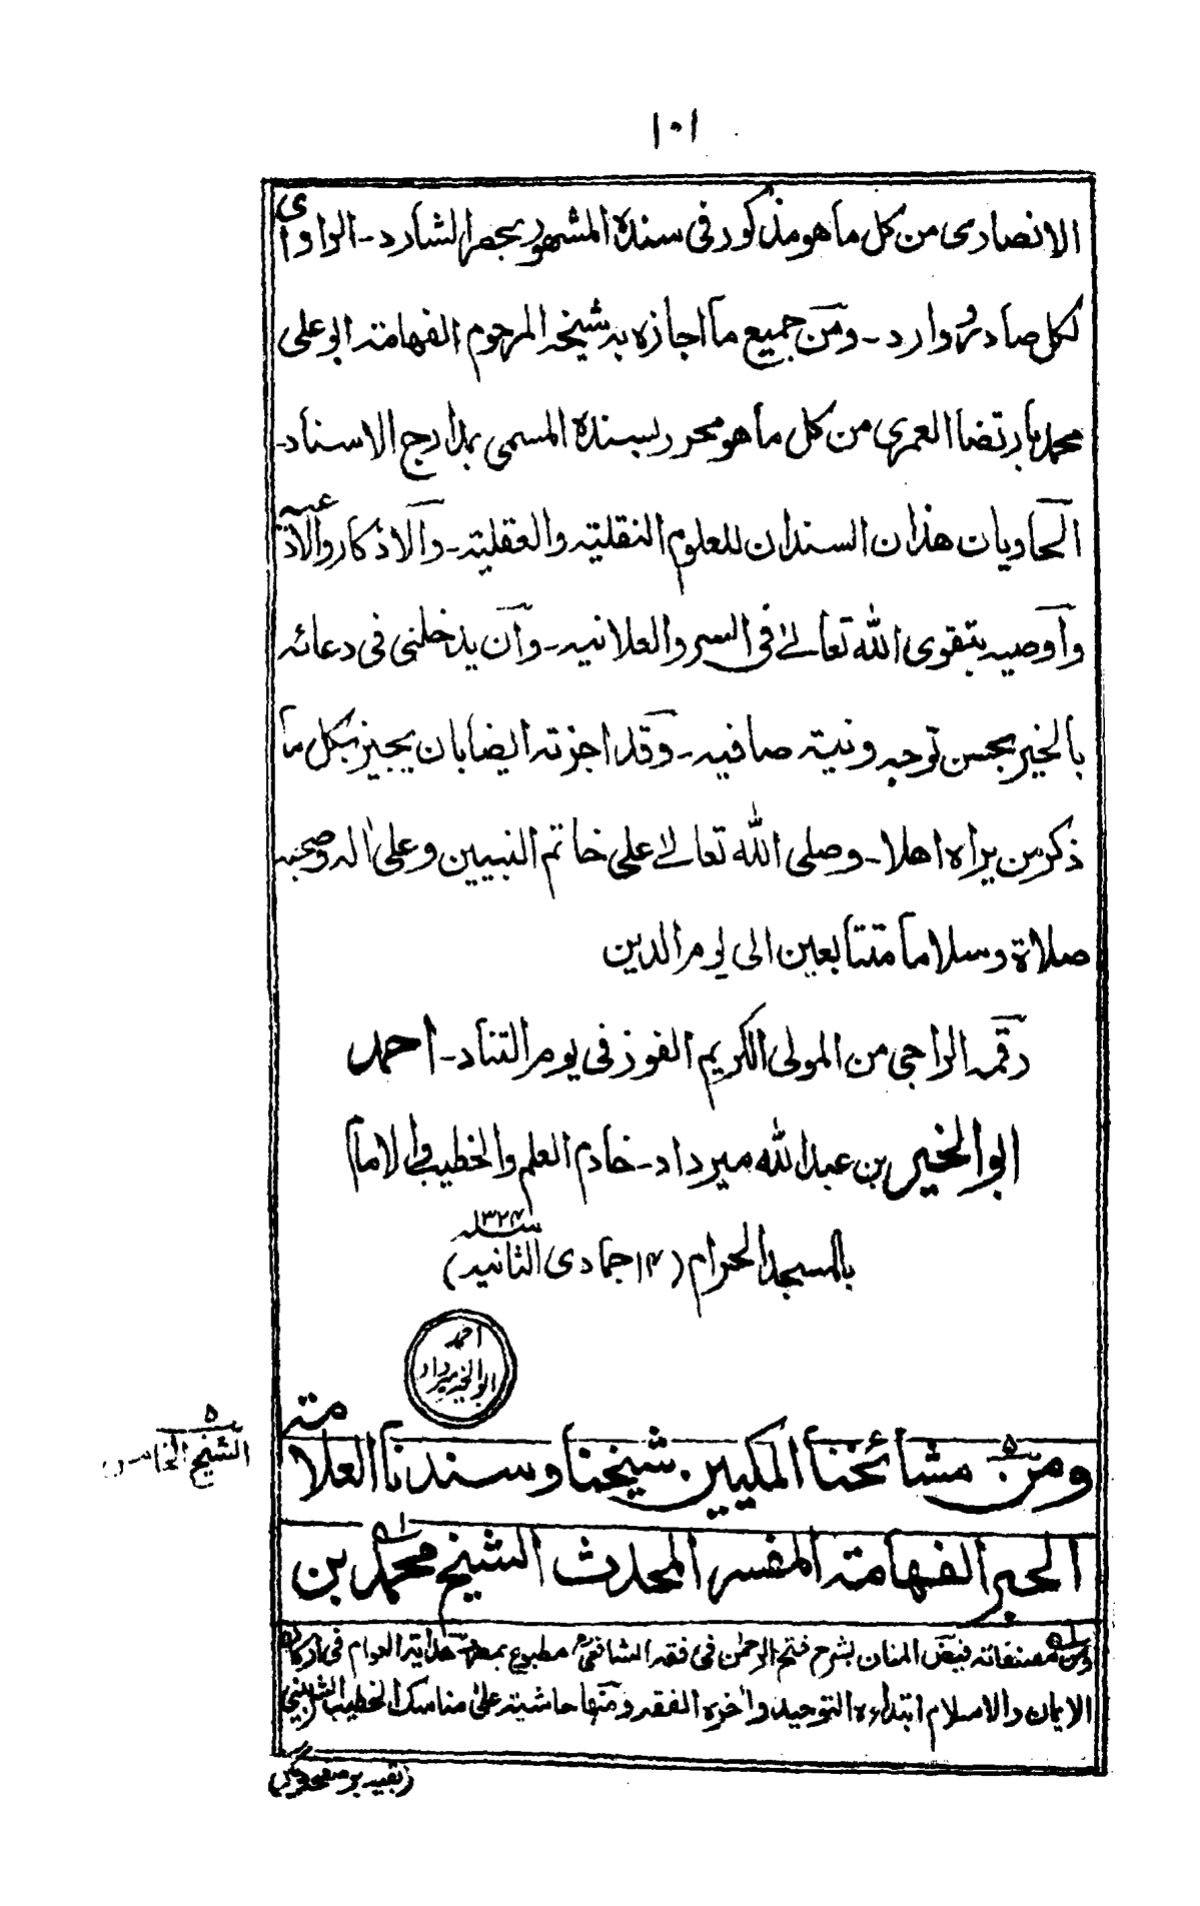 ١٠١
الانصاری من كل ما هو مذكور فی سنده المشهور بحصر الشارد - الراوای
لكل صادر ووارد - ومن جميع ما اجازه به شيخه المرحوم الفهامة ابو علی
محمد بارتضا العمری من كل ما هو محرر بسنده المسمی بمدارج الاسناد -
الحاويان هذان السندان للعلوم النقلية والعقلية - والاذكار والادعيه
واوصيه بتقوی الله تعالےٰ فی السر والعلانيه - وان يدخلنی فی دعائه
بالخير بحسن توجه ونية صافيه - وقد اجزته ايضا بان يجيز بكل ما
ذكر من يراه اهلا - وصلی الله تعالےٰ علی خاتم النبيين وعلی اٰله وصحبه
صلاة وسلاما متتابعين الی يوم الدين
رقمه الراجی من المولی الكريم الفوز فی يوم التناد - احمد
ابوالخير بن عبدالله ميرداد - خادم العلم والخطيب والاما
بالمسجد الحرام (١٤ جمادی الثانيه ١٣٢٤)
احمد
ابوالخير ميرداد
الشيخ الخامس ٥
ومن مشائخنا المكيين شيخنا وسندنا العلامة
الحبر الفهامة المفسر المحدث الشيخ محمد بن
ومن مصنفاته فيض المنان بشرح فتح الرحمٰن فی فقه الشافعی مطبوع بمصر هداية العوام فی اركان
الايمان والاسلام ابتداءه التوحيد واٰخره الفقه ومنها حاشية علیٰ مناسك الخطيب الشربينی
(بقيه بر صفحه ديگر)